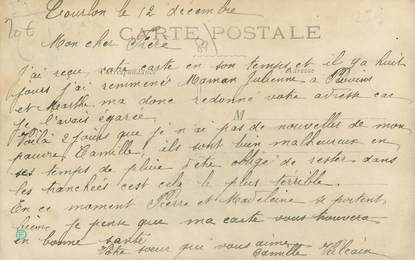 Tourlon le 12 décembre
20€
CARTE POSTALE
84
Mon cher Frère
J'ai reçu votre carte en son temps et il y a huit
Correspondance
Adresse
jours j'ai remmené Maman Julienne à
et Marthe ma donc redonné votre adresse car
M
je l'avais égarée
Voilà 2 jours que je n'ai pas de nouvelles de mon
pauvre Camille, ils sont bien malheureux en
ses temps de pluie d'être obligé de rester dans
les tranchées c'est cela le plus terrible.
En ce moment Pierre et Madeleine se portent
bien je pense que ma carte vous trouvera
en bonne santé
Votre sœur qui vous aime
Camille